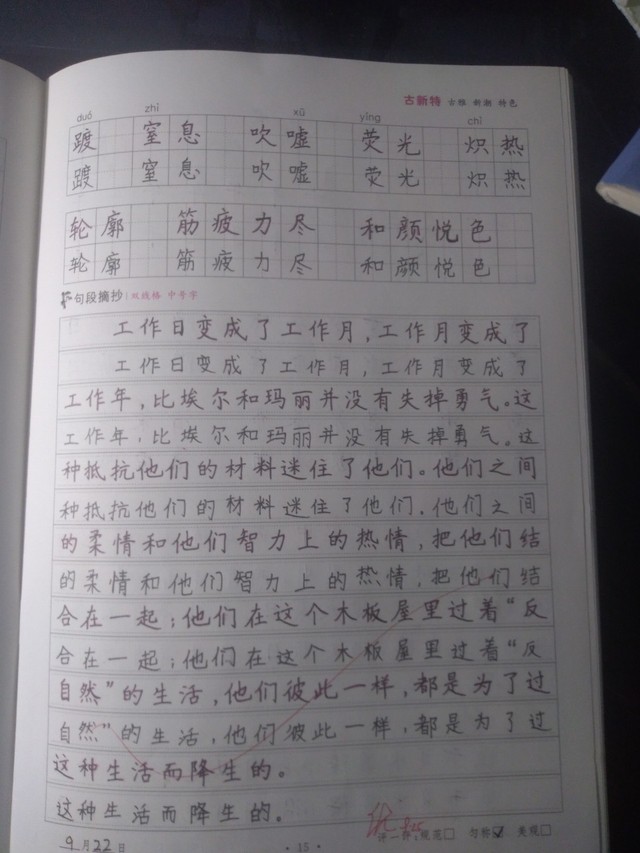 古新特 古雅 新潮 特色
duó zhì xū yíng chì
踱 窒息 吹嘘 荧光 炽热
踱 窒息 吹嘘 荧光 炽热
轮廓 筋疲力尽 和颜悦色
轮廓 筋疲力尽 和颜悦色
句段摘抄 双线格 中号字
工作日变成了工作月，工作月变成了
工作日变成了工作月，工作月变成了
工作年，比埃尔和玛丽并没有失掉勇气。这
工作年，比埃尔和玛丽并没有失掉勇气。这
种抵抗他们的材料迷住了他们。他们之间
种抵抗他们的材料迷住了他们。他们之间
的柔情和他们智力上的热情，把他们结
的柔情和他们智力上的热情，把他们结
合在一起；他们在这个木板屋里过着“反
合在一起；他们在这个木板屋里过着“反
自然”的生活，他们彼此一样，都是为了过
自然”的生活，他们彼此一样，都是为了过
这种生活而降生的。
这种生活而降生的。
9月22日 ·15· 评一评：规范□ 匀称□ 美观□